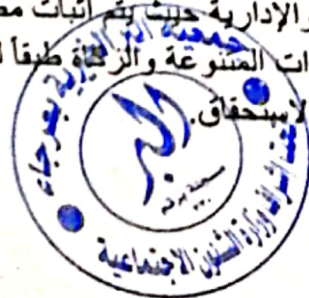 والإدارية حيث يتم اثبات مص
ات المتنوعة والزكاة طبقاً ل
لاستحقاق.
جمعية البر الخيرية بعرجاء
البر
مسجلة برقم
تحت إشراف وزارة الشئون الاجتماعية